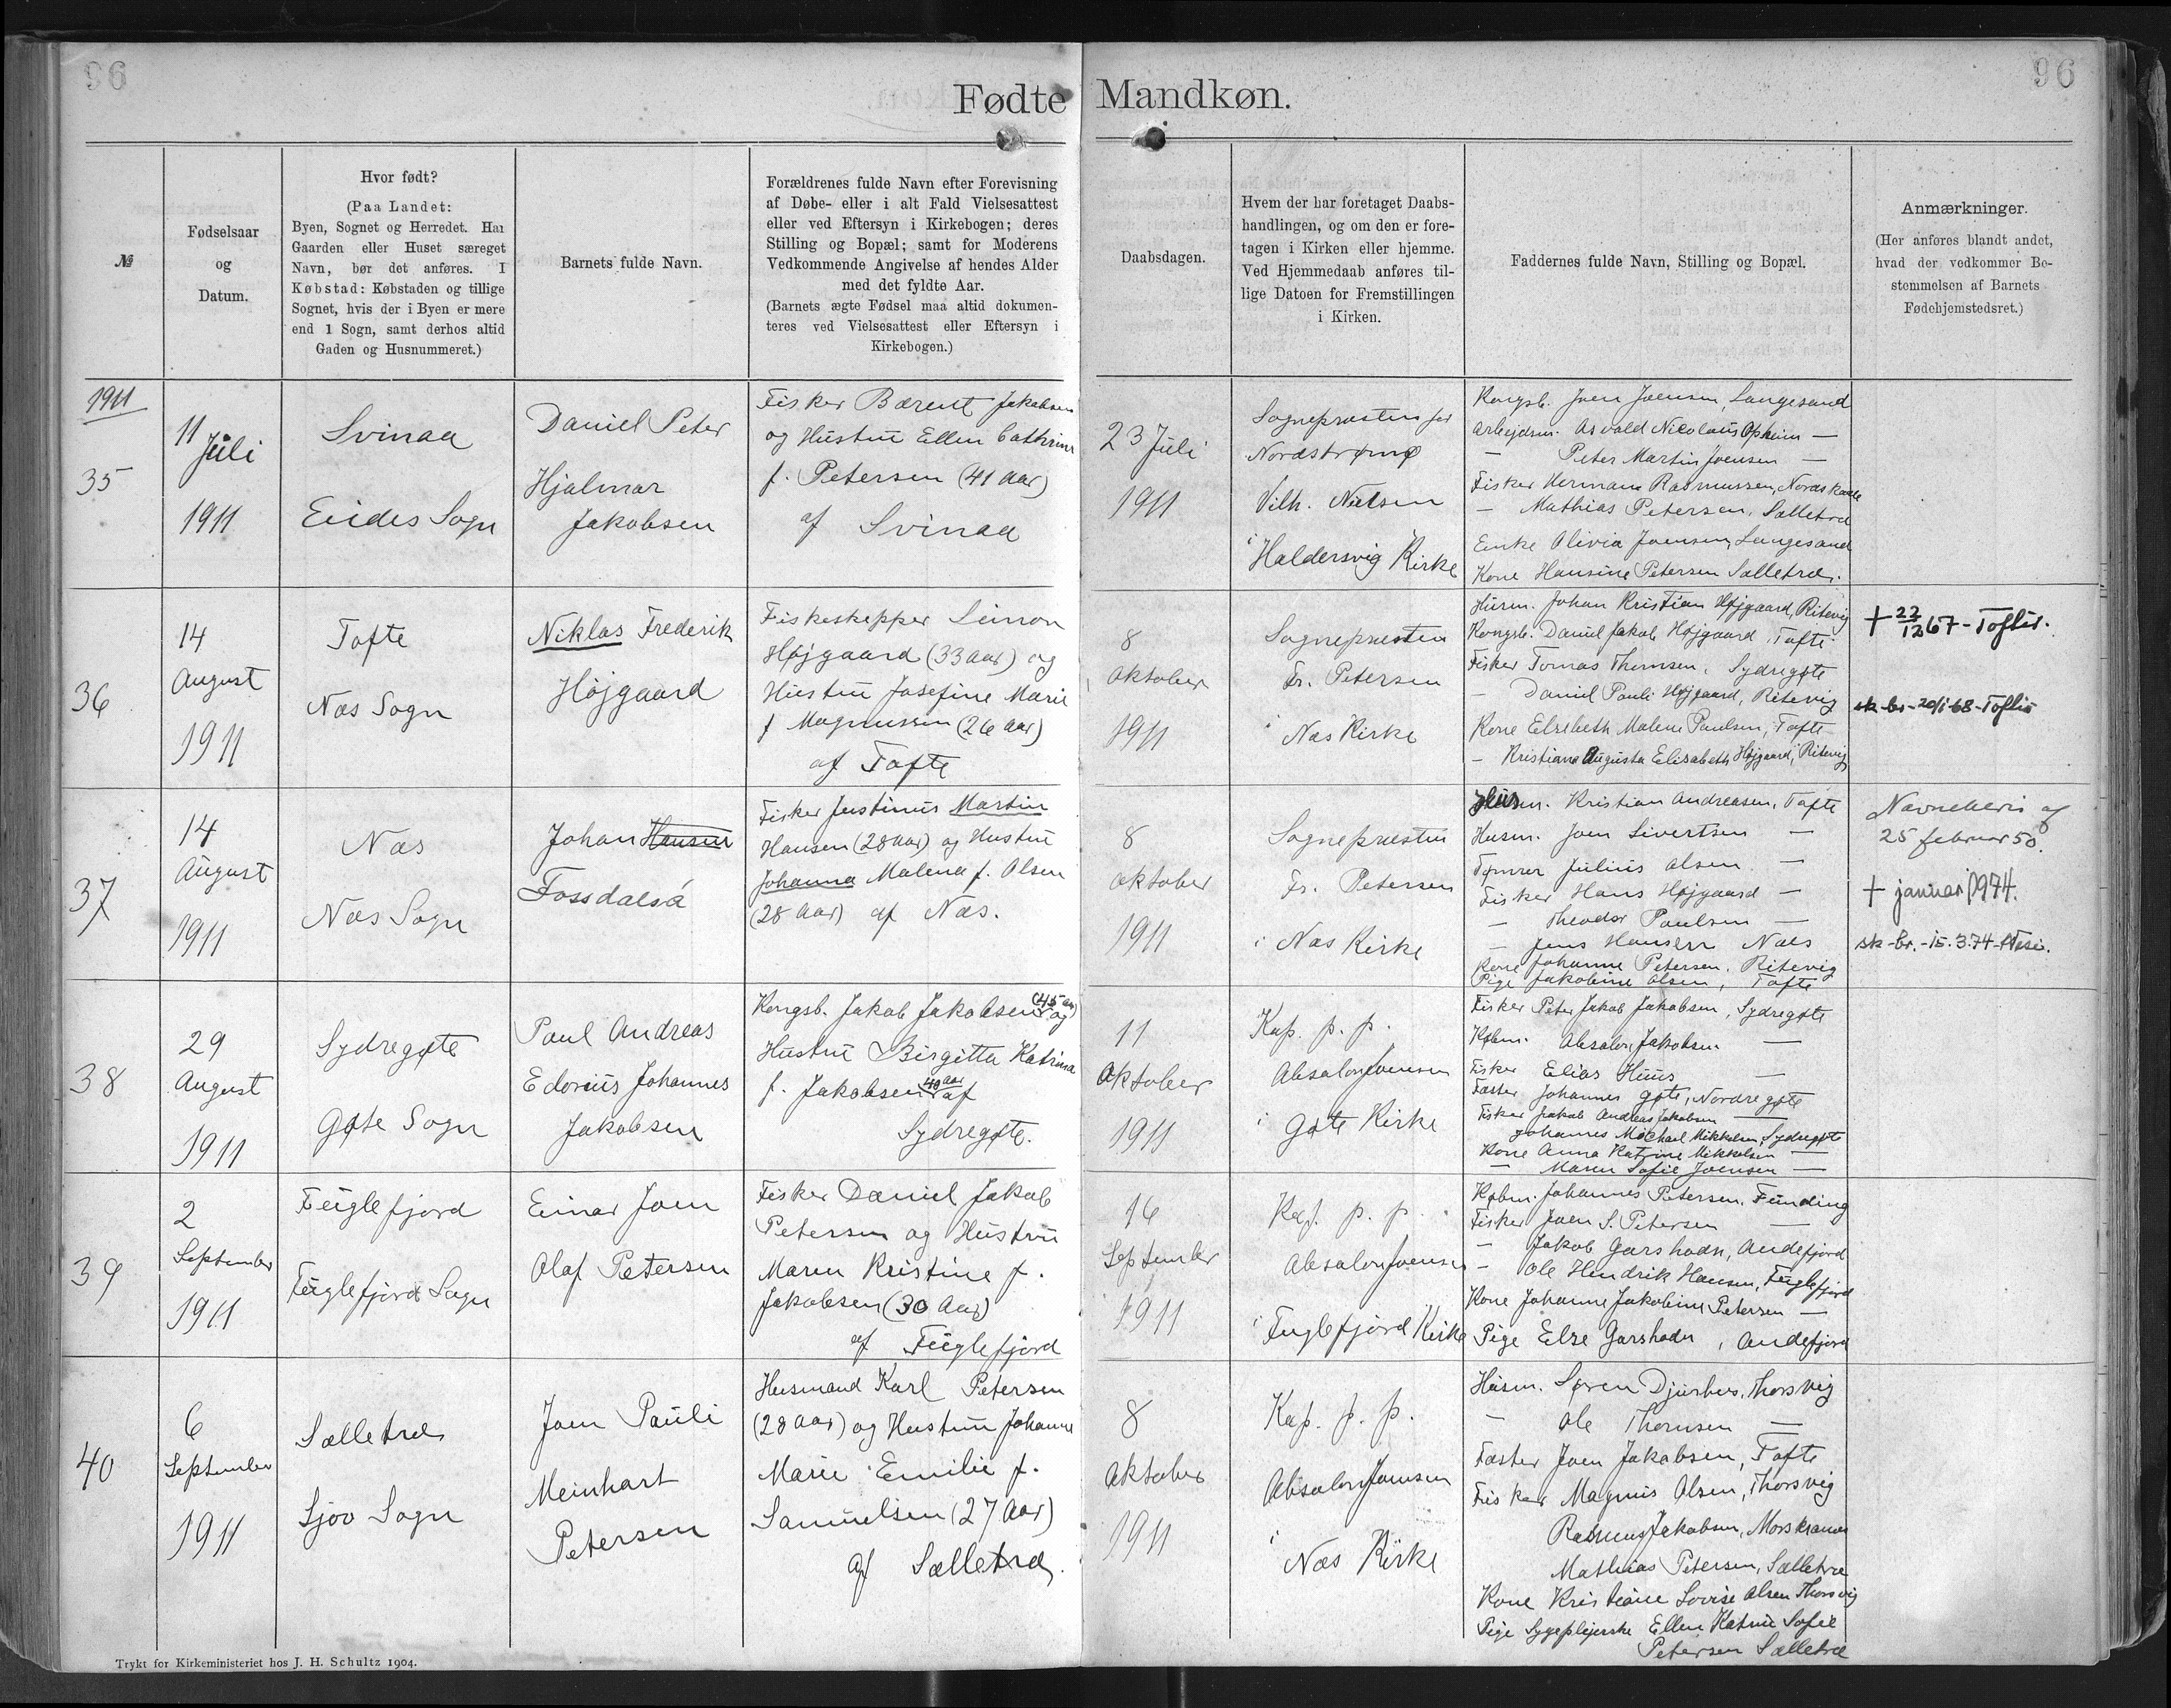 96
96
Fødte Mandkøn.
№
Fødselsaar
og
Datum.
Hvor født?
(Paa Landet:
Byen, Sognet og Herredet. Har
Gaarden eller Huset særeget
Navn, bør det anføres. I
Købstad: Købstaden og tillige
Sognet, hvis der i Byen er mere
end 1 Sogn, samt derhos altid
Gaden og Husnummeret.)
Barnets fulde Navn.
Forældrenes fulde Navn efter Forevisning
af Døbe- eller i alt Fald Vielsesattest
eller ved Eftersyn i Kirkebogen; deres
Stilling og Bopæl; samt for Moderens
Vedkommende Angivelse af hendes Alder
med det fyldte Aar.
(Barnets ægte Fødsel maa altid dokumen-
teres ved Vielsesattest eller Eftersyn i
Kirkebogen.)
Daabsdagen.
Hvem der har foretaget Daabs-
handlingen, og om den er fore-
tagen i Kirken eller hjemme.
Ved Hjemmedaab anføres til-
lige Datoen for Fremstillingen
i Kirken.
Faddernes fulde Navn, Stilling og Bopæl.
Anmærkninger.
(Her anføres blandt andet,
hvad der vedkommer Be-
stemmelsen af Barnets
Fødehjemstedsret.)
1911
35
11
Juli
1911
Svinaa
Eides Sogn
Daniel Peter
Hjalmar
Jakobsen
Fisker Bærent Jakobsen
og Hustru Ellen Cathrine
f. Petersen (41 Aar)
af Svinaa
23 Juli
1911
Sognepræsten for
Nordstrømø
Vilh. Nielsen
i Haldersvig Kirke
Kongsb. Joen Joensen, Langesand
Arbejdsm. Osvald Nicolaus Opheim —
— Peter Martin Joensen —
Fisker Herman Rasmussen, Nordskaale
— Mathias Petersen, Sælletræ
Enke Olivia Joensen, Langesand
Kone Hansine Petersen Sælletræ.
36
14
August
1911
Tofte
Næs Sogn
Niklas Frederik
Højgaard
Fiskeskipper Simon
Højgaard (33 Aar) og
Hustru Josefine Marie
f Magnussen (26 Aar)
af Tofte
8
Oktober
1911
Sognepræsten
Fr. Petersen
i Næs Kirke
Husm. Johan Kristian Højgaard, Ritevig
Kongsb. Daniel Jakob Højgaard, Tofte
Fisker Tomas Thomsen, Sydregøte
— Daniel Pauli Højgaard, Ritevig
Kone Elsebeth Malene Paulsen, Tofte
— Kristiane Augusta Elisabeth Højgaard, Ritevig
+ 22/12 67 - Toftir.
sk-br-20/1-68-Toftir
37
14
August
1911
Næs
Næs Sogn
Johan Hansen
Fossdalsá
Fisker Justinus Martin
Hansen (28 Aar) og Hustru
Johanna Malena f. Olsen
(28 Aar) af Næs.
8
Oktober
1911
Sognepræsten
Fr. Petersen
i Næs Kirke
Husm. Kristian Andreasen, Tofte
Husm. Joen Sivertsen —
Tømrer Julius Olsen —
Fisker Hans Højgaard —
— Theodor Paulsen —
— Jens Hansen Næs
Kone Johanne Petersen, Ritevig
Pige Jakobine Olsen, Tofte
Navnebevis af
25 februar 50.
+ januar 1974.
sk-br.-15.3.74-Nesi.
38
29
August
1911
Sydregøte
Gøte Sogn
Poul Andreas
Edorius Johannes
Jakobsen
Kongsb. Jakob Jakobsen (45 Aar) og
Hustru Birgitta Katrina
f. Jakobsen 40 Aar af
Sydregøte.
11
Oktober
1911
Kap. p. p.
Absalon Joensen
i Gøte Kirke
Fisker Peter Jakob Jakobsen, Sydregøte
Købm. Absalon Jakobsen —
Fisker Elias Huus —
Fæster Johannes Gøte, Nordregøte
Fisker Jakob Andreas Jakobsen —
Johannes Michael Mikkelsen, Sydregøte
Kone Anna Katrine Mikkelsen —
— Maren Sofie Joensen —
39
2
September
1911
Fuglefjord
Fuglefjord Sogn
Einar Joen
Olaf Petersen
Fisker Daniel Jakob
Petersen og Hustru
Maren Kristine f.
Jakobsen (30 Aar)
af Fuglefjord
16
September
1911
Kap. p. p.
Absalon Joensen
i Fuglefjord Kirke
Købm. Johannes Petersen, Funding
Fisker Joen S. Petersen —
— Jakob Garshodn, Andefjord
— Ole Hendrik Hansen, Fuglefjord
Kone Johanne Jakobine Petersen —
Pige Else Garshodn, Andefjord
40
6
September
1911
Sælletræ
Sjov Sogn
Joen Pauli
Meinhart
Petersen
Husmand Karl Petersen
(28 Aar) og Hustru Johanne
Marie Emilie f.
Samuelsen (27 Aar)
af Sælletræ.
8
Oktober
1911
Kap. p. p.
Absalon Joensen
i
Næs Kirke
Husm. Søren Djurhus, Thorsvig
— Ole Thomsen —
Fæster Joen Jakobsen, Tofte
Fisker Magnus Olsen, Thorsvig
Rasmus Jakobsen, Morskranes
Mathias Petersen, Sælletræ
Kone Kristiane Lovise Olsen Thorsvig
Pige Sygeplejerske Ellen Katrine Sofie
Petersen Sælletræ
Trykt for Kirkeministeriet hos J. H. Schultz 1904.